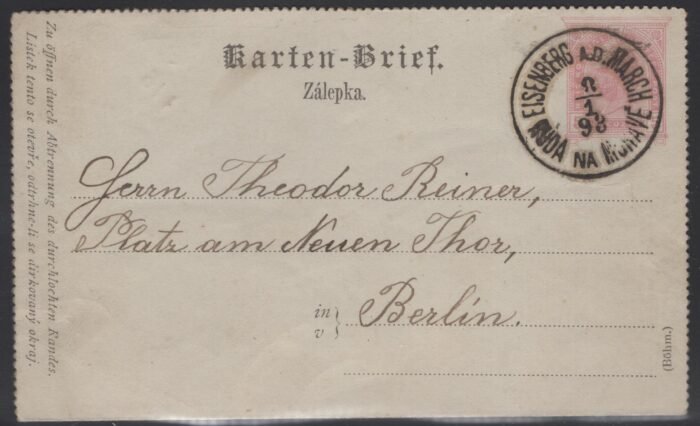 Karten-Brief.
Zálepka.
EISENBERG A.D. MARCH
2
1
93
RUDA NA MORAVĚ
Herrn Theodor Reiner,
Platz am Neuen Thor,
in
v
Berlin.
(Böhm.)
Zu öffnen durch Abtrennung des durchlochten Randes.
Lístek tento se otevře, odtrhne-li se dírkovaný okraj.